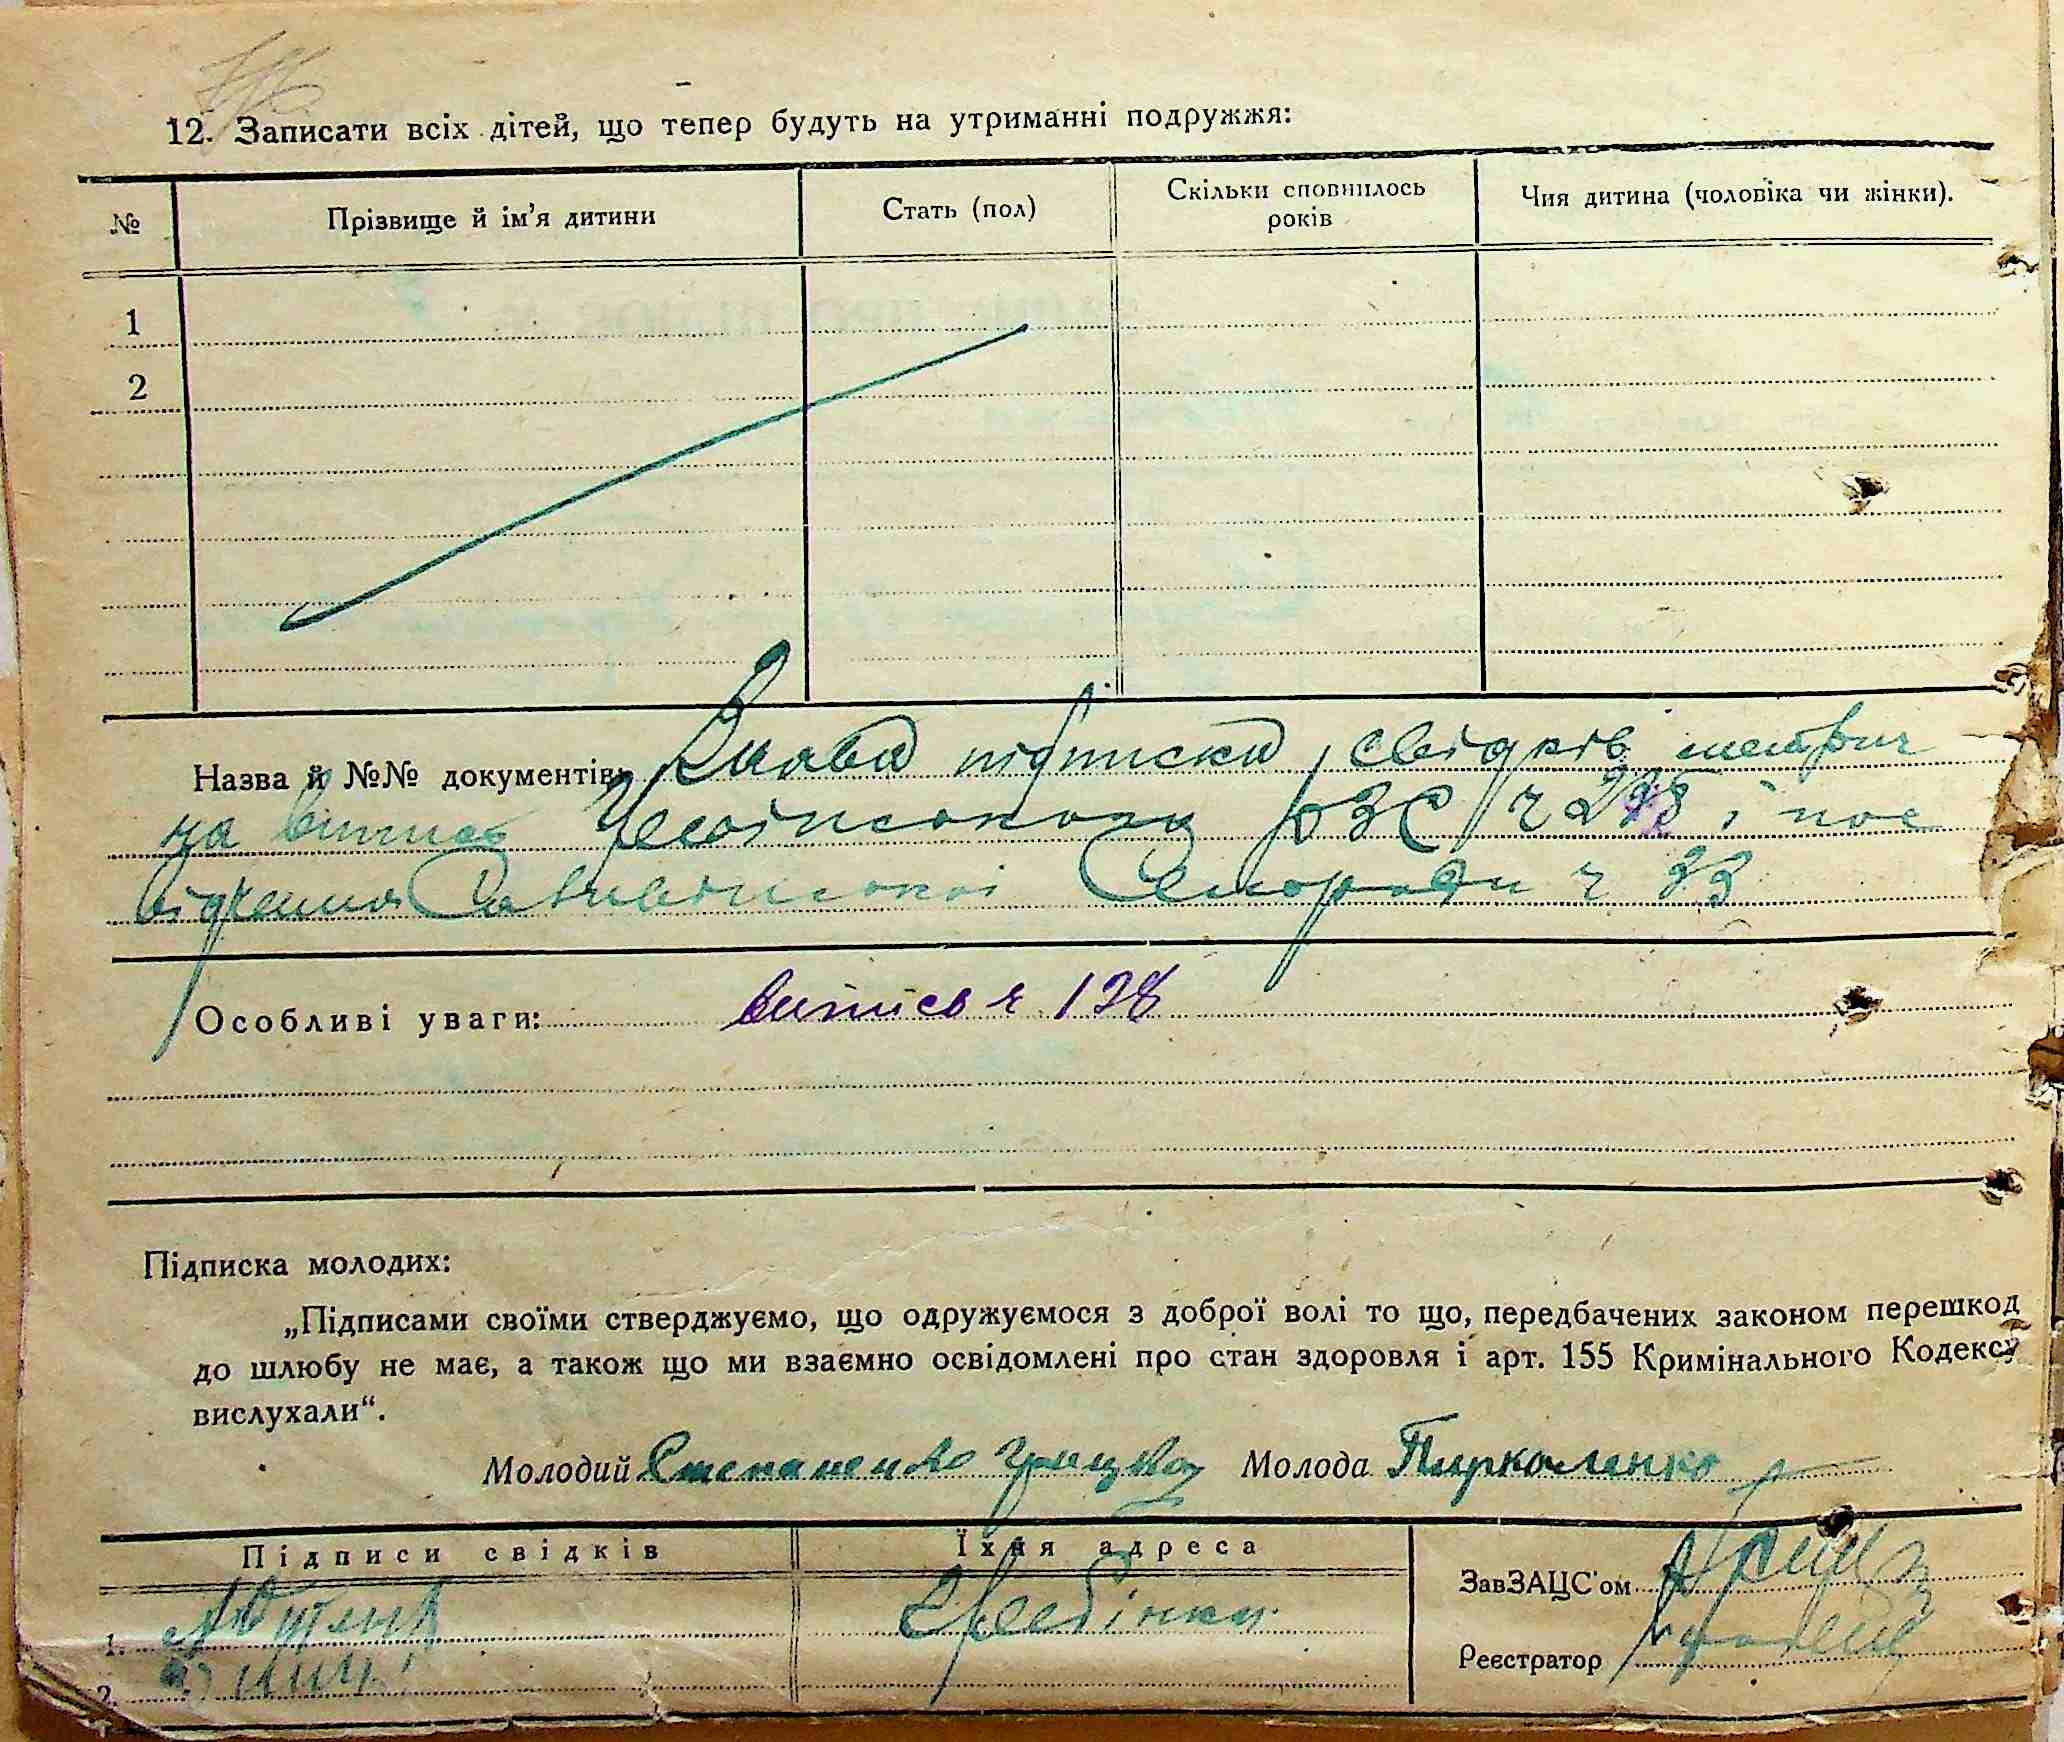 12. Записати всіх дітей, що тепер будуть на утриманні подружжя:
№ Прізвище й ім’я дитини Стать (пол) Скільки сповнилось років Чия дитина (чоловіка чи жінки).
1
2
Назва й №№ документів: підписка, свідків, метрич
на випис РЗС ч і пос
відчення Сільради ч 33
Особливі уваги: випись ч 138
Підписка молодих:
„Підписами своїми стверджуємо, що одружуємося з доброї волі то що, передбачених законом перешкод
до шлюбу не має, а також що ми взаємно освідомлені про стан здоровля і арт. 155 Кримінального Кодексу
вислухали“.
Молодий Степаненко Молода
Підписи свідків Їхня адреса
ЗавЗАЦС'ом
1. Гребінка
Реєстратор
2.